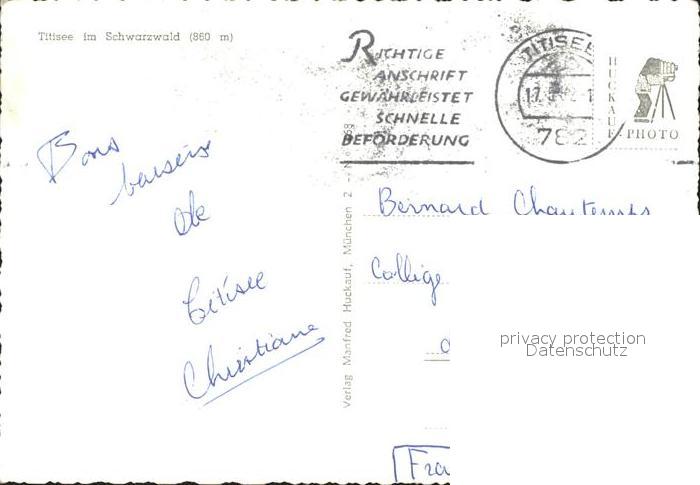 Titisee im Schwarzwald (860 m)
RICHTIGE
ANSCHRIFT
GEWÄHRLEISTET
SCHNELLE
BEFÖRDERUNG
TITISEE
782
HUCKAUF
PHOTO
Bons
baisers
de
Titisee
Christiane
Verlag Manfred Huckauf, München 2
Bernard Chautemps
Collège
Fra
privacy protection
Datenschutz